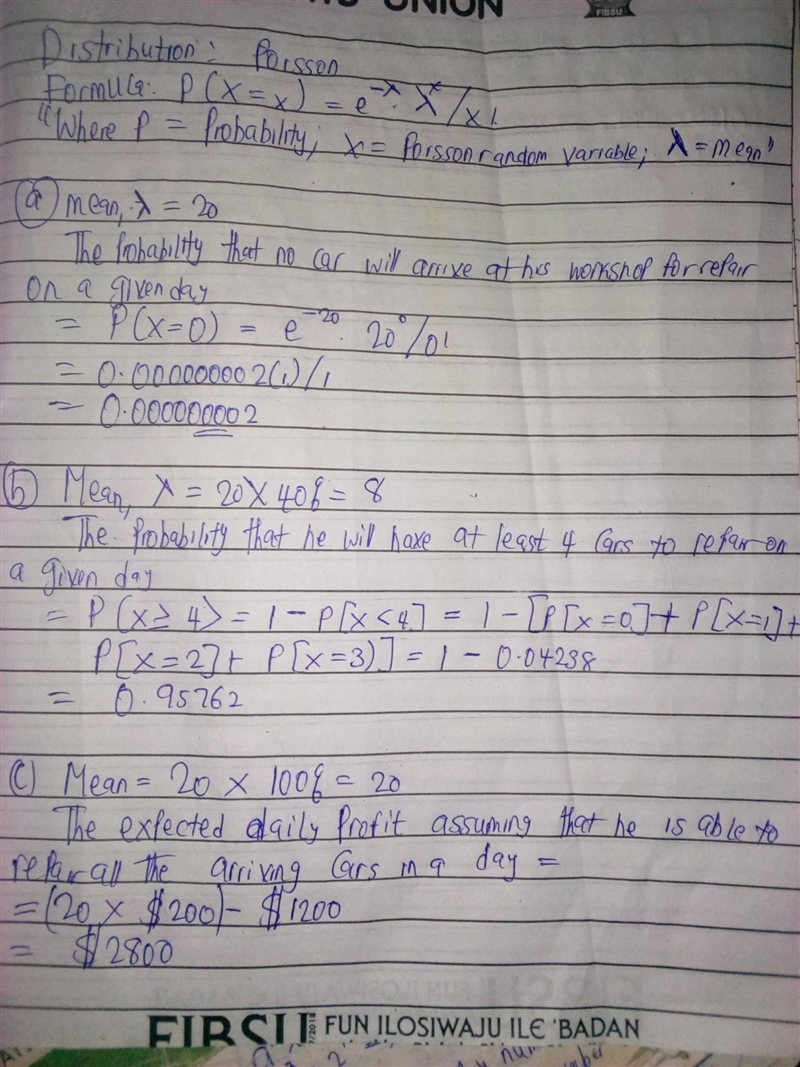 UNION
FIBSU
Distribution: Poisson
Formula: P(X=x) = e^-λ. λ^x/x!
"Where P = Probability; x = Poisson random variable; λ = mean"
(a) mean, λ = 20
The Probability that no car will arrive at his workshop for repair
on a given day
= P(X=0) = e^-20. 20^0/0!
= 0.000000002(1)/1
= 0.000000002
(b) Mean, λ = 20 X 40% = 8
The Probability that he will have at least 4 cars to repair on
a given day
= P(X≥4) = 1 - P[X<4] = 1 - [P[X=0] + P[X=1] +
P[X=2] + P[X=3)] = 1 - 0.04238
= 0.95762
(c) Mean = 20 x 100% = 20
The expected daily Profit assuming that he is able to
repair all the arriving cars in a day =
= (20 x $200) - $1200
= $2800
FIBSU FUN ILOSIWAJU ILE 'BADAN